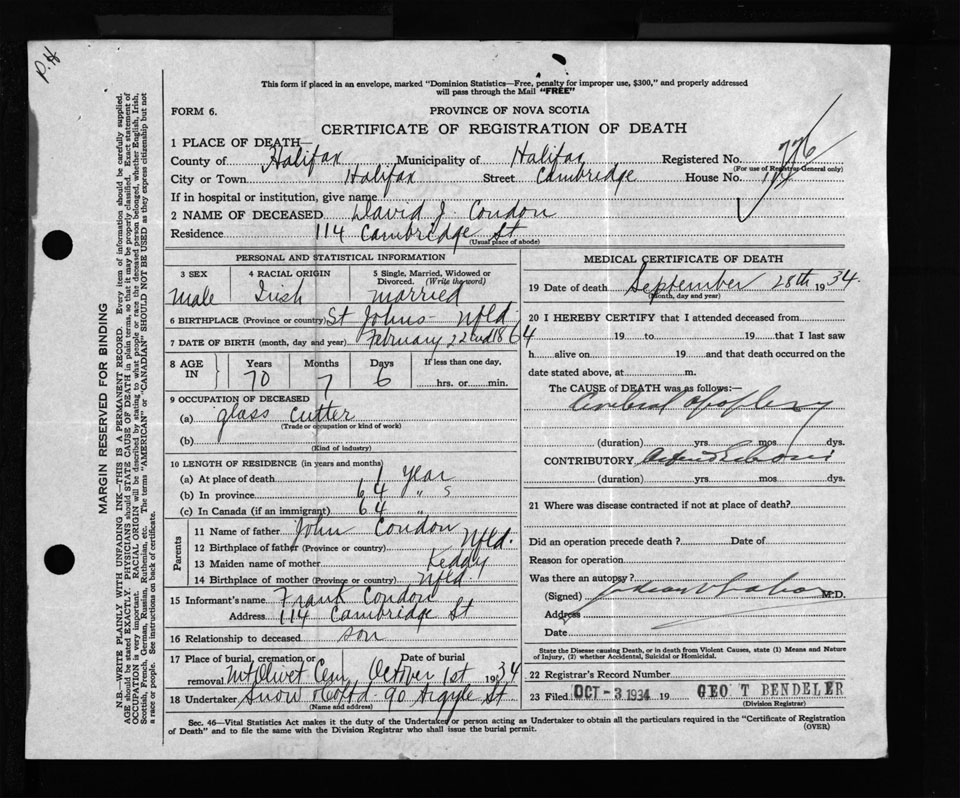 P.H
This form if placed in an envelope, marked "Dominion Statistics—Free, penalty for improper use, $300," and properly addressed
will pass through the Mail "FREE"
FORM 6.
PROVINCE OF NOVA SCOTIA
CERTIFICATE OF REGISTRATION OF DEATH
1 PLACE OF DEATH—
County of Halifax Municipality of Halifax Registered No. 776
(For use of Registrar-General only)
City or Town Halifax Street Cambridge House No. 114
If in hospital or institution, give name
2 NAME OF DECEASED David J. Condon
Residence 114 Cambridge St
(Usual place of abode)
PERSONAL AND STATISTICAL INFORMATION
3 SEX 4 RACIAL ORIGIN 5 Single, Married, Widowed or
Divorced. (Write the word)
Male Irish Married
6 BIRTHPLACE (Province or country) St Johns - Nfld.
7 DATE OF BIRTH (month, day and year) February 22nd 1864
8 AGE IN Years Months Days If less than one day,
70 7 6 hrs. or min.
9 OCCUPATION OF DECEASED
(a) glass cutter
(Trade or occupation or kind of work)
(b)
(Kind of industry)
10 LENGTH OF RESIDENCE (in years and months)
(a) At place of death 1 year
(b) In province 64 " s
(c) In Canada (if an immigrant) 64 "
Parents
11 Name of father John Condon
12 Birthplace of father (Province or country) Nfld.
13 Maiden name of mother Keddy
14 Birthplace of mother (Province or country) Nfld.
15 Informant's name Frank Condon
Address 114 Cambridge St
16 Relationship to deceased son
17 Place of burial, cremation or removal Mt Olivet Cem Date of burial October 1st 1934
18 Undertaker Snow & Co Ltd. 90 Argyle St
(Name and address)
MEDICAL CERTIFICATE OF DEATH
19 Date of death September 28th 1934.
(Month, day and year)
20 I HEREBY CERTIFY that I attended deceased from
19 to 19 that I last saw
h alive on 19 and that death occurred on the
date stated above, at m.
The CAUSE of DEATH was as follows:—
Cerebral apoplexy
(duration) yrs mos dys.
CONTRIBUTORY
(duration) yrs. mos. dys.
21 Where was disease contracted if not at place of death?
Did an operation precede death? Date of
Reason for operation
Was there an autopsy?
(Signed) M.D.
Address
Date
State the Disease causing Death, or in death from Violent Causes, state (1) Means and Nature
of Injury, (2) whether Accidental, Suicidal or Homicidal.
22 Registrar's Record Number
23 Filed OCT -3 1934 19 GEO T BENDELER
(Division Registrar)
Sec. 46—Vital Statistics Act makes it the duty of the Undertaker or person acting as Undertaker to obtain all the particulars required in the "Certificate of Registration
of Death" and to file the same with the Division Registrar who shall issue the burial permit.
(OVER)
MARGIN RESERVED FOR BINDING
N.B.—WRITE PLAINLY WITH UNFADING INK—THIS IS A PERMANENT RECORD. Every item of information should be carefully supplied.
AGE should be stated EXACTLY. PHYSICIANS should STATE CAUSE OF DEATH in plain terms, so that it may be properly classified. Exact statement of
OCCUPATION is very important. RACIAL ORIGIN will be described by stating to what people or race the deceased person belonged, whether English, Irish,
Scottish, French, German, Russian, Ruthenian, etc. The terms "AMERICAN" or "CANADIAN" SHOULD NOT BE USED as they express citizenship but not
a race or people. See instructions on back of certificate.